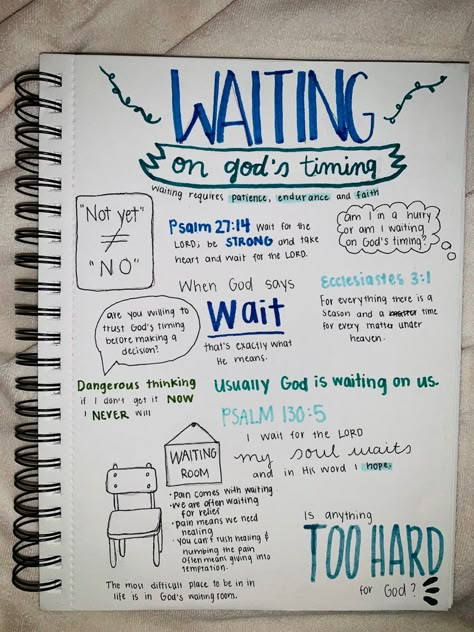 WAITING
on god's timing
Waiting requires patience, endurance and faith
"Not yet"
≠
"NO"
Psalm 27:14 Wait for the
LORD; be STRONG and take
heart and wait for the LORD.
am I in a hurry
or am I waiting
on God's timing?
When God says
Wait
that's exactly what
He means.
Ecclesiastes 3:1
For everything there is a
season and a time
for every matter under
heaven.
are you willing to
trust God's timing
before making a
decision?
Dangerous thinking
if I don't get it NOW
I NEVER will
Usually God is waiting on us.
PSALM 130:5
I wait for the LORD
my soul waits
and in His word I hope.
WAITING
ROOM
• Pain comes with waiting
• we are often waiting
for relief
• Pain means we need
healing
• You can't rush healing &
numbing the pain
often means giving into
temptation.
The most difficult place to be in in
life is in God's waiting room.
Is anything
TOO HARD
for God?